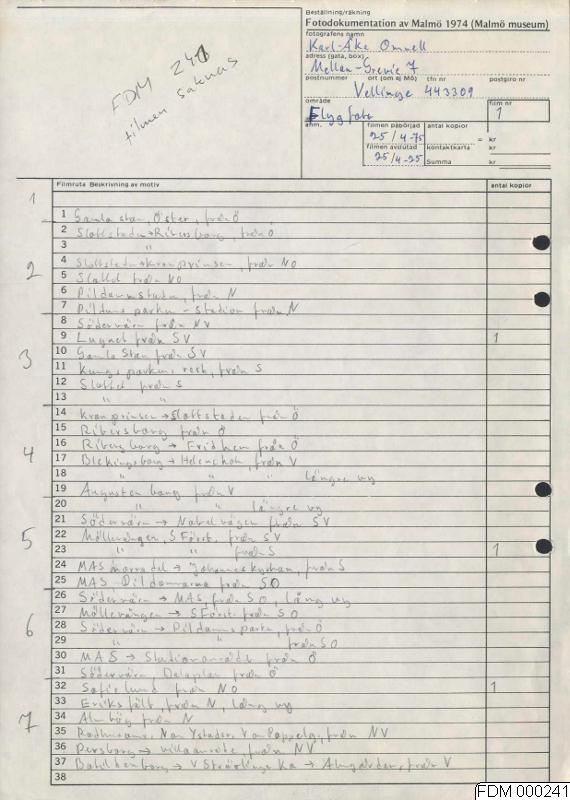 Beställning/räkning
Fotodokumentation av Malmö 1974 (Malmö museum)
fotografens namn
Karl-Åke Omnell
adress (gata, box)
Mellan-Grevie 7
postnummer ort (om ej Malmö) tfn nr postgiro nr
Vellinge 443309
område
Flygfoto
film nr
1
anm.
filmen påbörjad antal kopior
25/4-75 = kr
filmen avslutad kontaktkarta kr
25/4-75 Summa kr
FDM 241
filmen saknas
Filmruta Beskrivning av motiv antal kopior
1
1 Gamla stan, Öster, från Ö
2 Slottstaden → Ribersborg, från Ö
3 "
2
4 Slottstaden → Kronprinsen, från NO
5 Slottet från NO
6 Pildammstaden, från N
7 Pildamsparken - Stadion från N
8 Södervärn från NV
9 Lugnet från SV 1
3
10 Gamla Stan från SV
11 Kungsparkens rest, från S
12 Slottet från S
13 " "
14 Kronprinsen → Slottstaden från Ö
15 Ribersborg från Ö
4
16 Ribersborg → Fridhem från Ö
17 Blekingsborg → Heleneholm, från V
18 " " längre vy
19 Augustenborg från V
20 " " längre vy
21 Södervärn → Nobelvägen från SV
5
22 Möllevången, S Först. från SV
23 " " från S 1
24 MAS norra del → Johanneskyrkan, från S
25 MAS - Pildammarna från SO
26 Södervärn → MAS, från SO, lång vy
27 Möllevången → S Först. från SO
6
28 Södervärn → Pildammsparken, från Ö
29 " " från SO
30 MAS → Stadionområdet från Ö
31 Södervärn, Dalaplan från Ö
32 Sofielund från NO 1
33 Eriksfält, från N, lång vy
7
34 Almhög från N
35 Rådmansv, Nor Ystadsv, från NV
36 Persborg → villaområde, från NV
37 Bätildenborg → V Skrävlinge Ka → Almgården, från V
38
FDM 000241